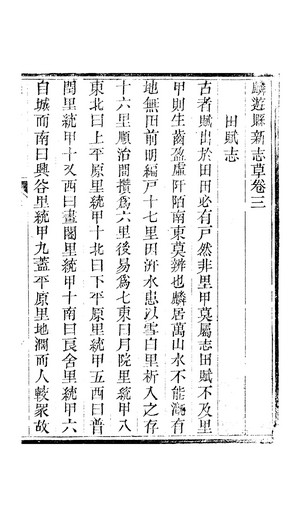 麟遊縣新志草卷三
田賦志
古者賦出於田田必有戶然非里甲莫屬志田賦不及里
甲則生齒盈虛阡陌南東莫辨也麟居萬山水不能漑有
地無田前明編戶十七里因汧水患以雪白里析入之存
十六里順治間攢為六里後易為七東曰月院里統甲八
東北曰上平原里統甲十北曰下平原里統甲五西曰普
閏里統甲十又西曰畫閣里統甲十南曰良舍里統甲六
自城而南曰興谷里統甲九蓋平原里地濶而人較眾故